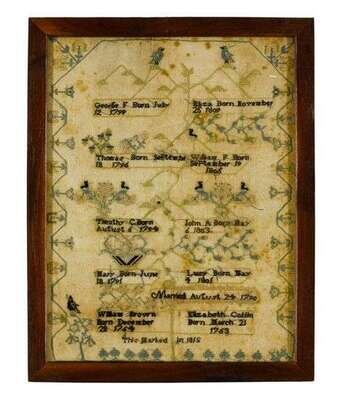 George F Born July
12 1799
Eliza Born November
25 1809
Thomas Born September
18 1796
William F Born
September 19
1806
Timothy C Born
August 6 1794
John A Born May
6 1803
Mary Born June
18 1791
Lucy Born May
4 1801
Married August 24 1790
William Brown
Born December
23 1764
Elizabeth Coffin
Born March 21
1763
This Marked in 1818